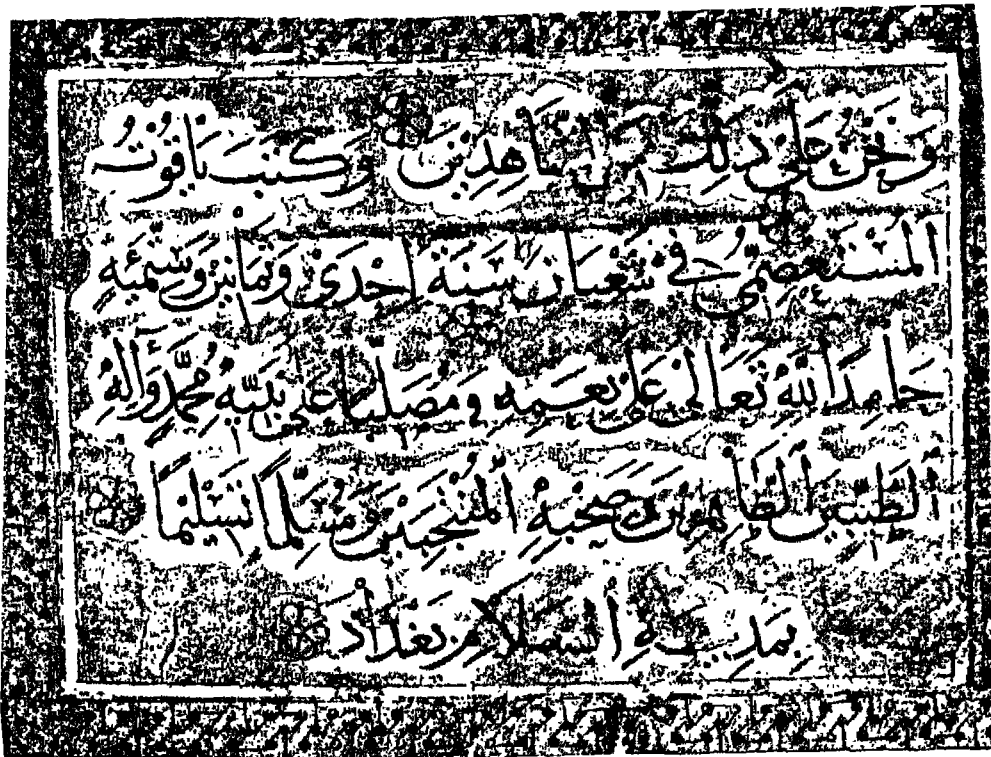 وَنَحْنُ عَلَىٰ ذَلِكَ مِنَ الشَّاهِدِينَ وَكَتَبَ يَاقُوتُ
المُسْتَعْصِمِيُّ فِي شَعْبَانَ سَنَةَ اِحْدَى وَثَمَانِينَ وَسِتِّمِئَةٍ
حَامِدًا لِلَّهِ تَعَالَى عَلَى نِعَمِهِ وَمُصَلِّيًا عَلَى نَبِيِّهِ مُحَمَّدٍ وَآلِهِ
الطَّيِّبِينَ الطَّاهِرِينَ وَصَحْبِهِ المُنْتَجَبِينَ وَمُسَلِّمًا تَسْلِيمًا
بِمَدِينَةِ السَّلَامِ بَغْدَادَ